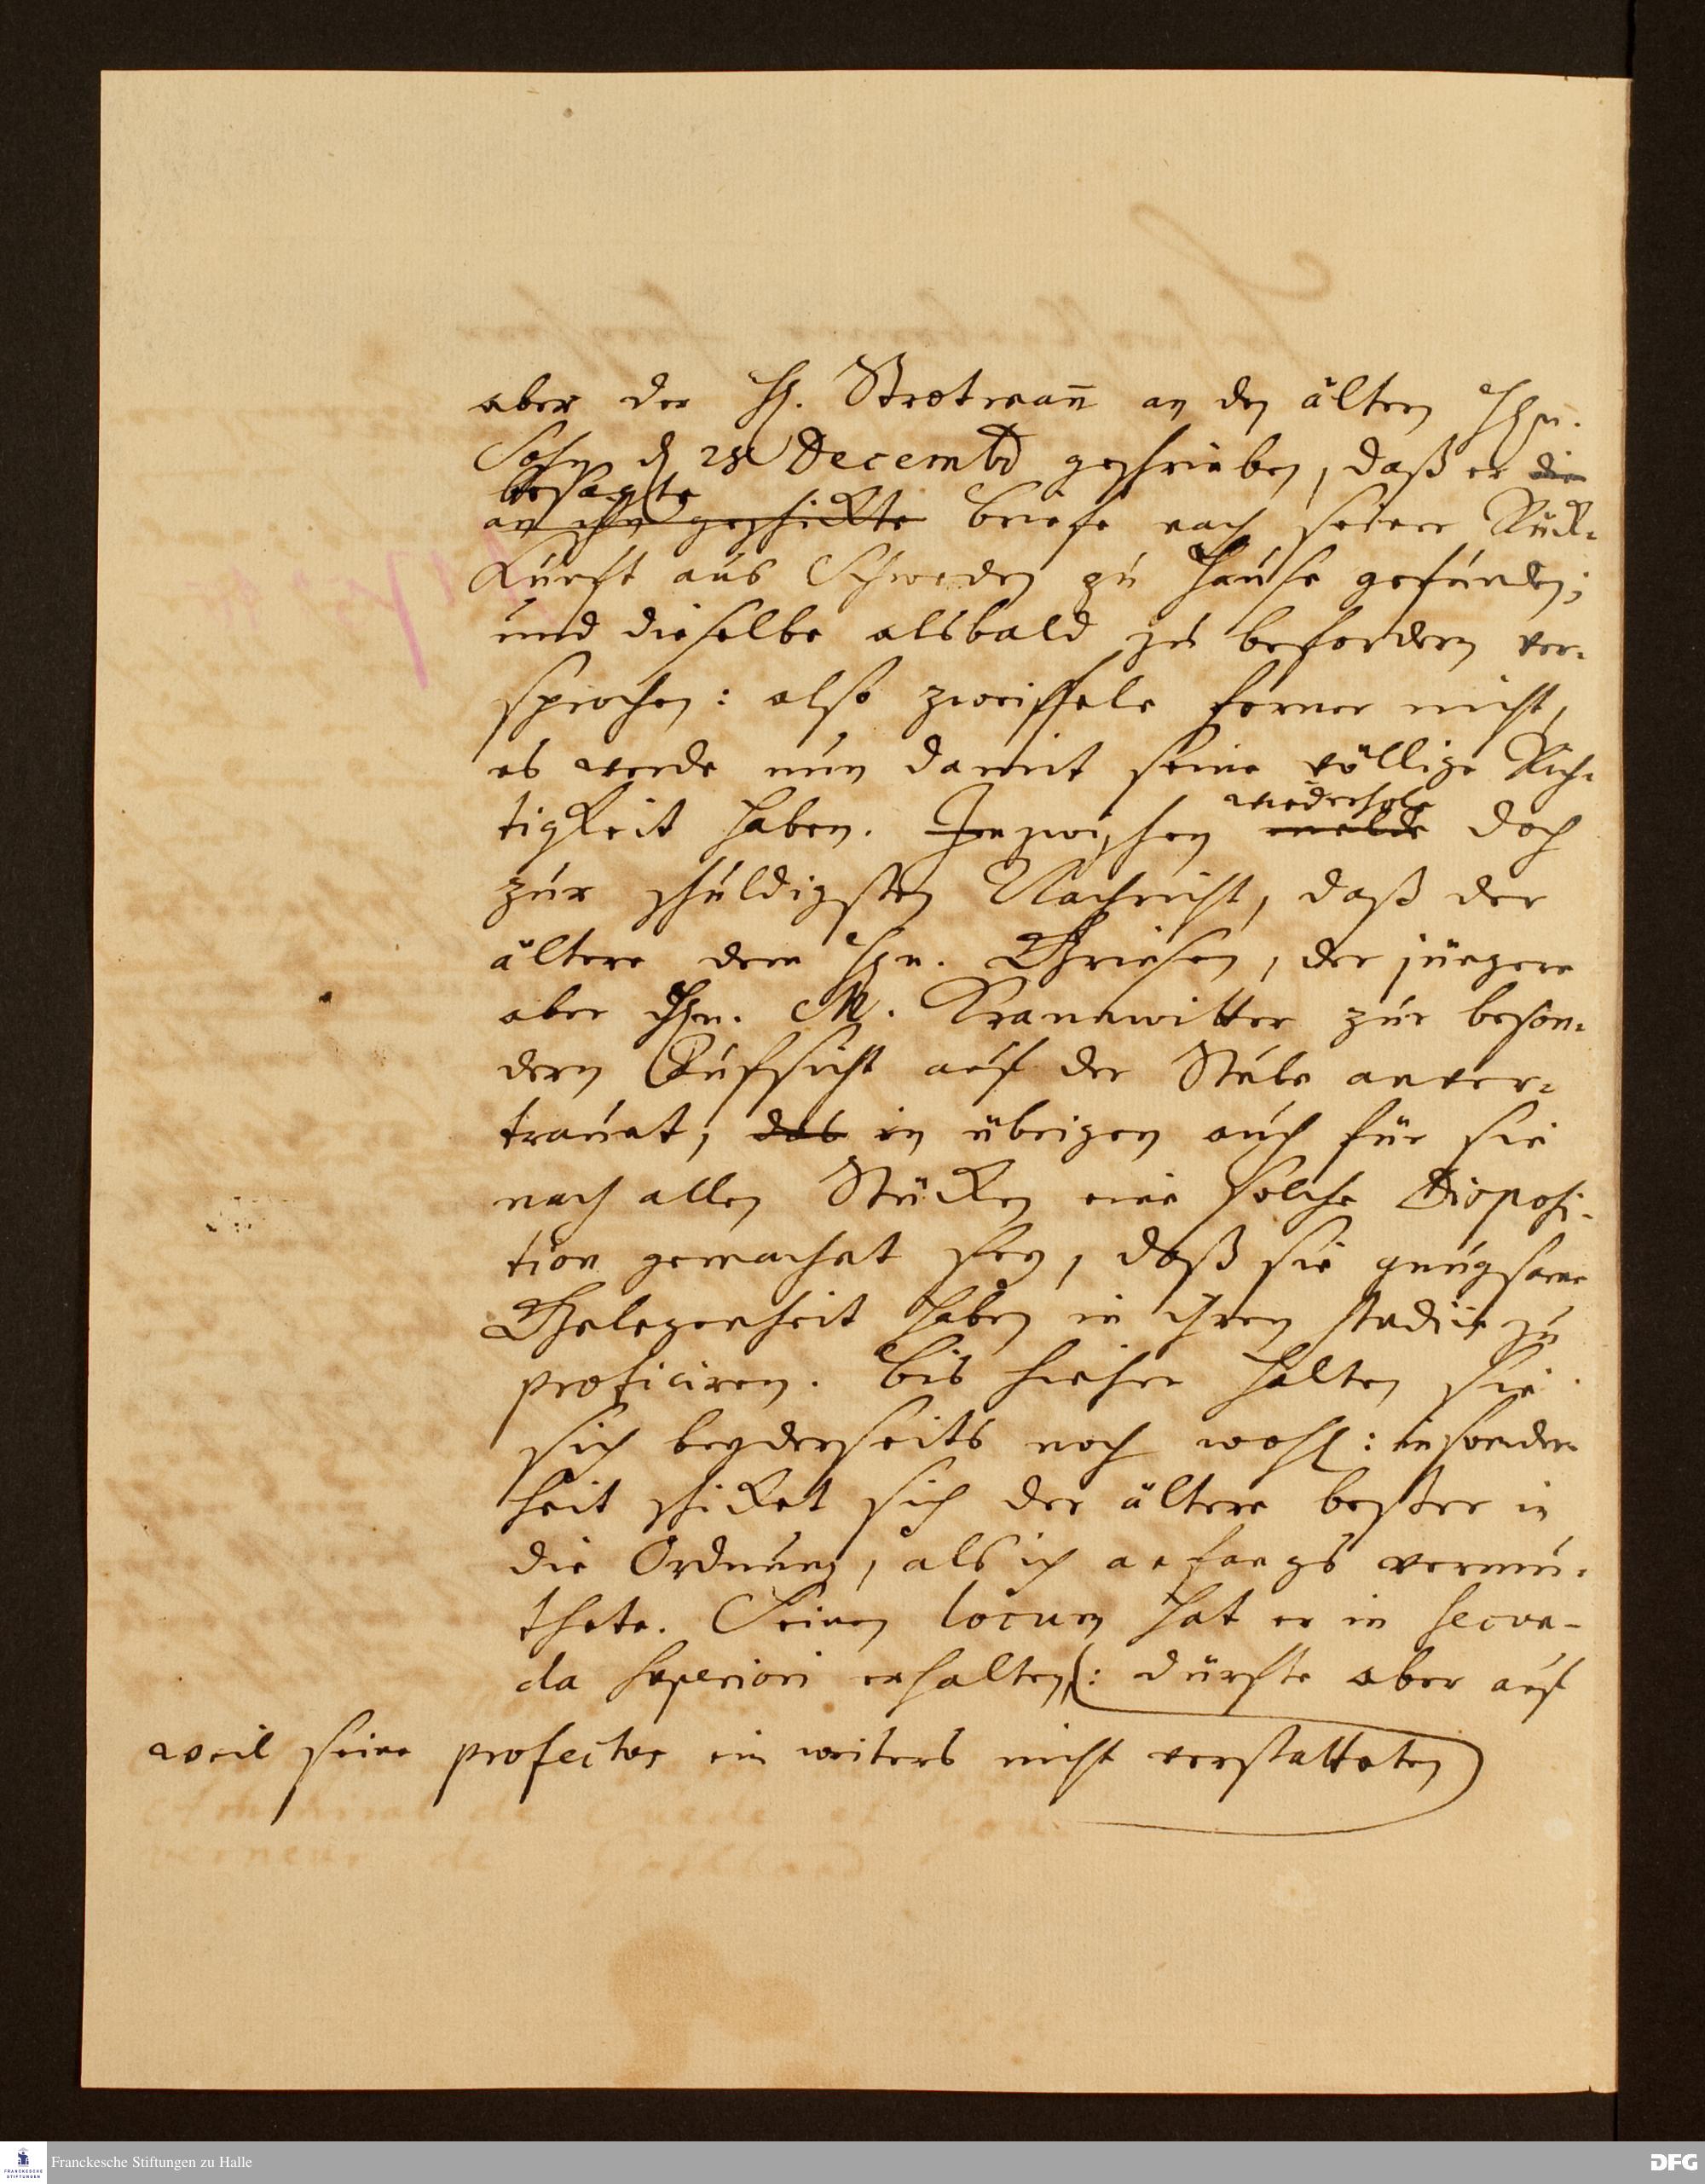 aber der H. Strotmañ an den ältern Hhn.
Sohn d 28 Decembr geschrieben, daß er die
besagte
an ihn geschickte briefe nach seiner Rük-
kunft aus Schweden zu Hause gefunden;
und dieselbe alsbald zu befordern ver-
sprochen: also zweiffele ferner nicht,
es werde nun damit seine völlige Rich-
wiederhole
tigkeit haben. Inzwischen melde doch
zur schuldigsten Nachricht, daß der
ältere dem Hn. Griesen, der jüngere
aber Hn. M. Kranewitter zur beson-
dern Aufsicht auf der Stube anver-
trauet, das in übrigen auch für sie
nach allen Stücken eine solche Disposi-
tion gemachet sey, daß sie gnugsame
Gelegenheit haben in ihren studiis zu
proficiren. Bis hieher halten sie
sich beyderseits noch wohl: insonder-
heit schicket sich der ältere besser in
die Ordnung, als ich anfangs vermu-
thete. Seinen locum hat er in secun-
da superiori erhalten,(: dürfte aber auf
weil seine profectus ein weiters nicht verstatteten)
Franckesche Stiftungen zu Halle
FRANCKESCHE STIFTUNGEN
DFG